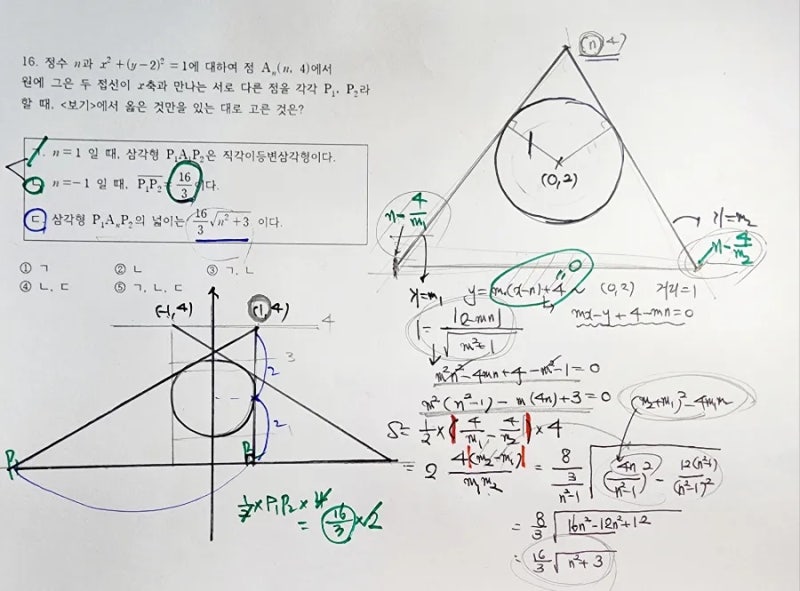 16. 정수 n과 x²+(y-2)²=1에 대하여 점 Aₙ(n, 4)에서
원에 그은 두 접선이 x축과 만나는 서로 다른 점을 각각 P₁, P₂라
할 때, <보기>에서 옳은 것만을 있는 대로 고른 것은?
ㄱ. n=1 일 때, 삼각형 P₁A₁P₂은 직각이등변삼각형이다.
ㄴ. n=-1 일 때, P₁P₂=16/3이다.
ㄷ. 삼각형 P₁AₙP₂의 넓이는 16/3√(n²+3) 이다.
① ㄱ ② ㄴ ③ ㄱ, ㄴ
④ ㄴ, ㄷ ⑤ ㄱ, ㄴ, ㄷ
(-1, 4) (1, 4) 4
3
2
2
1
P₁ P₂
1/2 × P₁P₂ × 4
= 16/3 × 2
(n, 4)
1
(0, 2)
n - 4/m₁
n - 4/m₂
기=m₂
기=m₁
y = m(x-n)+4 ~ (0, 2) 거리=1
0
mx-y+4-mn=0
1 = |2-mn|/√(m²+1)
m²n²-4mn+4-m²-1=0
m²(n²-1)-m(4n)+3=0
(m₂+m₁)²-4m₁m₂
S = 1/2 × (4/m₁ - 4/m₂) × 4
= 2 4(m₂-m₁)/m₁m₂ = 8/(3/(n²-1)) √((4n/(n²-1))² - 12(n²-1)/(n²-1)²)
= 8/3 √(16n²-12n²+12)
= 16/3 √(n²+3)